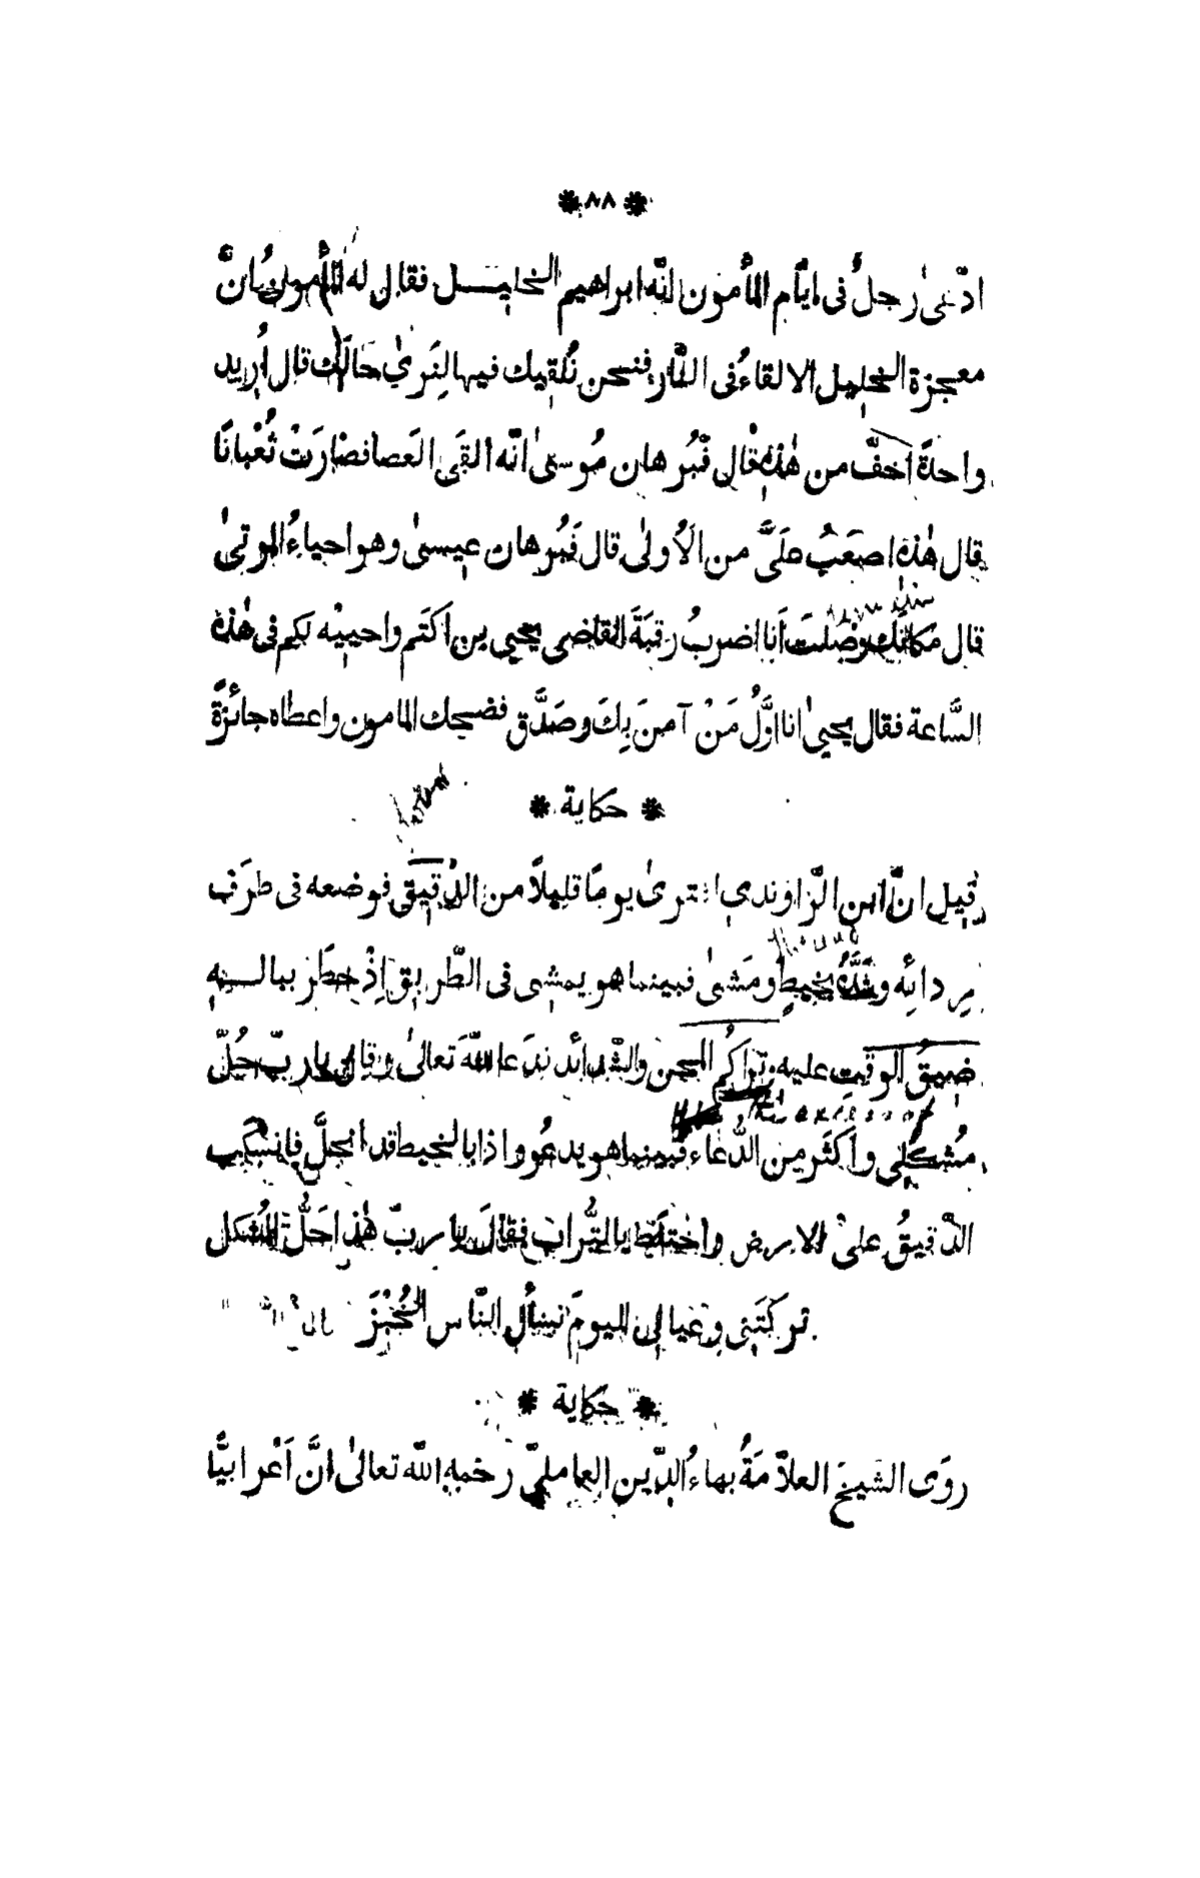 * ٨٨ *
ادّعىٰ رجلٌ فى ايّام المأمون انّه ابراهيم الخليـــل فقال له المأمون انّ
معجزة الخليل الالقاءُ فى النّار فنحن نُلقيك فيها لِنَرىٰ حَالَك قال أُريد
واحدةً اخفَّ من هٰذه قال فَبُرهان مُوسىٰ انّه القَى العَصا فصَارَتْ ثُعْبانًا
قال هٰذه اصعَبُ علَىَّ من الأولىٰ قال فَبُرهان عيسىٰ وهو احياءُ الموتىٰ
قال مَكانَك وصَلتَ اَنا اضربُ رقبَةَ القاضى يحيى بن اَكثَم واحييْه لكم فى هٰذه
السَّاعة فقال يحيىٰ انا اوَّلُ مَنْ آمنَ بِكَ وصَدَّق فضحك المامون واعطاه جائزةً
* حكاية *
قيل انَّ ابن الرَّاوندى اشترىٰ يومًا قليلاً من الدّقيق فوضعه فى طَرَف
رِدائِه وشَدَّهُ بخيطٍ ومَشىٰ فبينما هو يمشى فى الطّريق اِذْ خطَرَ ببالـــه
ضيقُ الوقت عليه وتراكُم المحن والشّدائد فدَعا اللّهَ تعالىٰ وقال يا ربّ حُلّ
مُشكلى واَكثَر من الدُّعاء فبينما هو يدعُو واذا بالخيط قد انحلَّ فانسكَب
الدّقيقُ علىٰ الارض واختلَط بالتُّراب فقالَ يا ربّ هٰذا حَلُّ المُشكل
تركتَنى وعيالى اليومَ نسأل النّاس الخُبْزَ
* حكاية *
روَى الشيخ العلاّمَةُ بهاءُ الدّين العاملىّ رحمه اللّه تعالىٰ انَّ اَعْرابيًّا